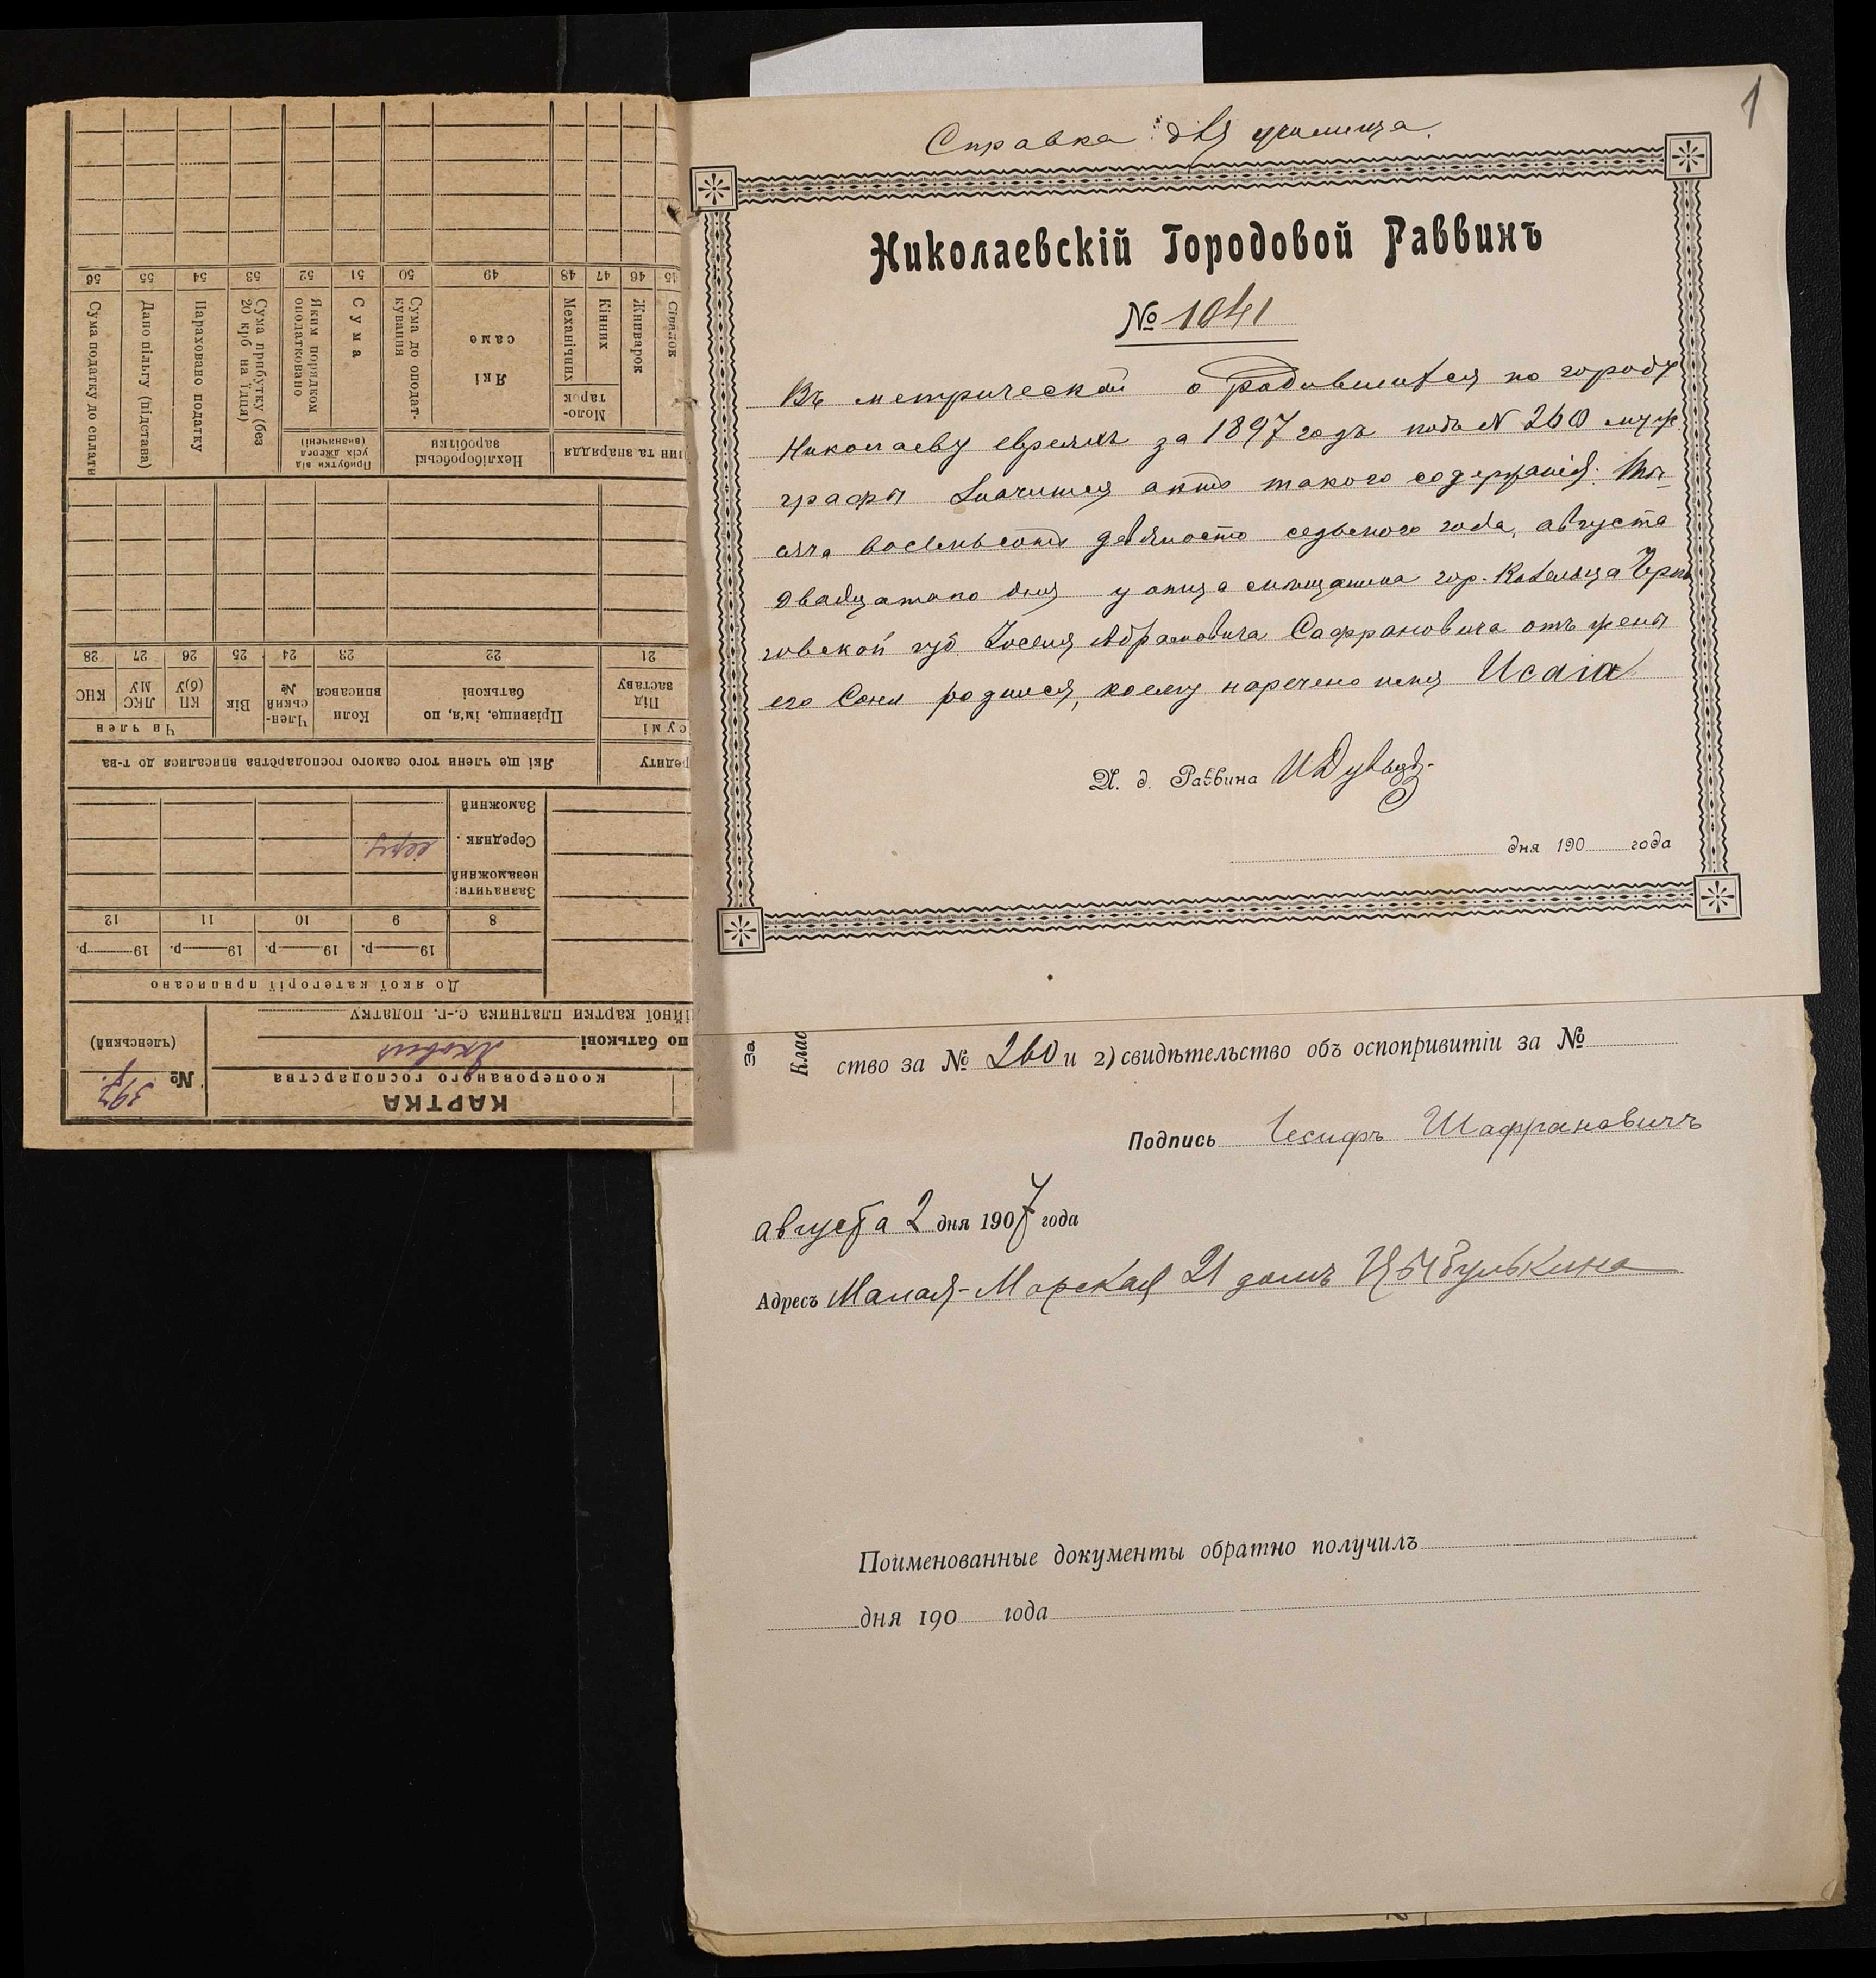 1
Справка для училища.
Николаевскій Городовой Раввинъ
№ 1041
Въ метрической о родившихся по городу
Николаеву евреяхъ за 1897 годъ подъ N 260 муж.
графы значится актъ такого содержанія: Ты-
сяча восемьсотъ девяносто седьмого года, августа
двадцатого дня у отца мѣщанина гор. Козельца Черни
говской губ. Іоселя Абрамовича Сафрановича отъ жены
его Сони родился, коему наречено имя Исаія
И. д. Раввина
дня 190 года
За
Клас
ство за № 260 и 2) свидѣтельство объ оспопривитіи за №
Подпись Іосифъ Шафрановичъ
августа 2 дня 1907 года
Адресъ Малая-Морская 21 домъ Цыбулькина
Поименованные документы обратно получилъ
дня 190 года
КАРТКА
кооперованого господарства
№ 397
(членський)
по батькові Яковил
ійної картки платника с.-г. податку
До якої категорії приписано
19 р. 19 р. 19 р. 19 р.
8 9 10 11 12
Зазначити:
незаможний
Середняк серед
Заможний
редиту
Які ще члени того самого господарства вписалися до т-ва
сумі
Під заставу
Прізвище, ім'я, по батькові
Коли вписався
Член-ський №
Вік
Чи член
КП (б)У
ЛКС МУ
КНС
21 22 23 24 25 26 27 28
ини та знаряддя
Нехліборобські заробітки
Прибутки від усіх джерел (визначені)
Сівалок
Жниварок
Моло-тарок
Кінних
Механічних
Які саме
Сума до оподат-кування
Сума
Яким порядком оподатковано
Сума прибутку (без 20 крб на їдця)
Нараховано податку
Дано пільгу (підстава)
Сума податку до сплати
45 46 47 48 49 50 51 52 53 54 55 56